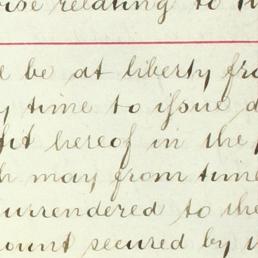 ise relating to
be at liberty fro
time to issue d
fit hereof in the
h may from time
surrendered to the
ount secured by